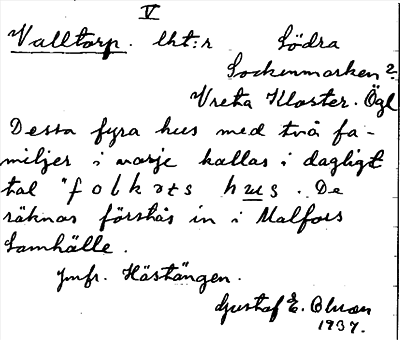 V
Valltorp. lht:r Södra
Sockenmarken?
Vreta Kloster. Ögl
Dessa fyra hus med två fa-
miljer i varje kallas i dagligt
tal "folkets hus. De
räknas förstås in i Malfors
Samhälle.
Jmfr. Hästängen.
Gustaf E. Olsson
1937.